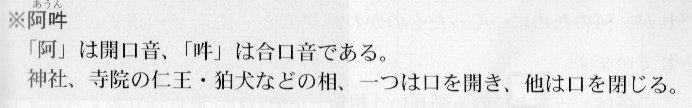 あうん
※阿吽
「阿」は開口音、「吽」は合口音である。
神社、寺院の仁王・狛犬などの相、一つは口を開き、他は口を閉じる。